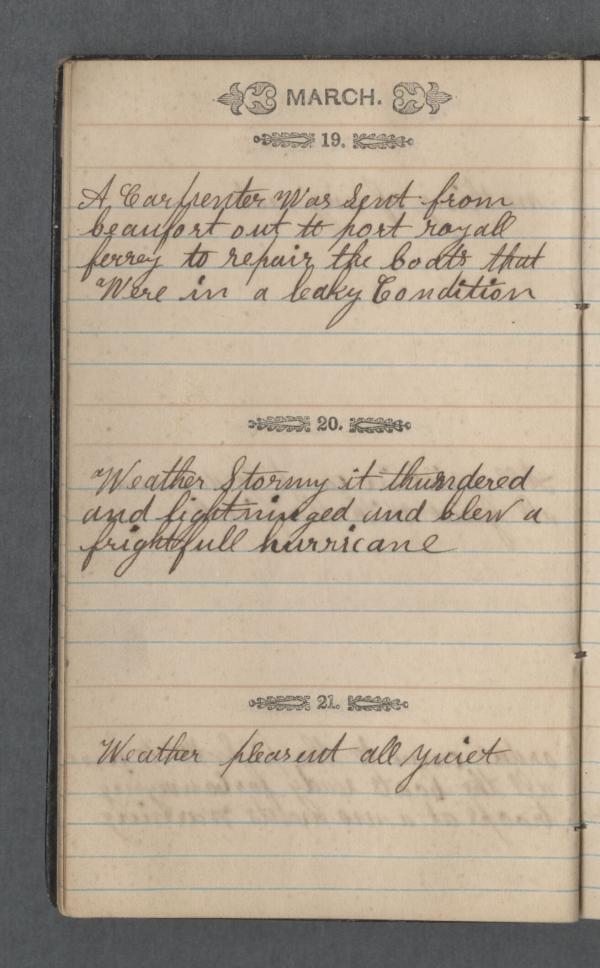 MARCH.
19.
A Carpenter Was Sent from
beaufort out to port royall
ferrey to repair the boats that
Were in a leaky Condition
20.
Weather Stormy it thundered
and lightninged and blew a
frightfull hurricane
21.
Weather pleasent all quiet